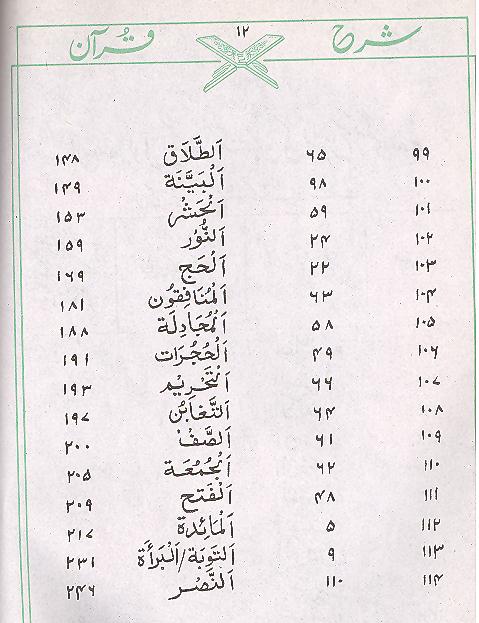 شرح ۱۲ قرآن
۹۹ ۶۵ اَلطَّلَاق ۱۴۸
۱۰۰ ۹۸ اَلْبَيِّنَة ۱۴۹
۱۰۱ ۵۹ اَلْحَشْر ۱۵۳
۱۰۲ ۲۴ اَلنُّوْر ۱۵۹
۱۰۳ ۲۲ اَلْحَج ۱۶۹
۱۰۴ ۶۳ اَلْمُنَافِقُون ۱۸۱
۱۰۵ ۵۸ اَلْمُجَادِلَة ۱۸۸
۱۰۶ ۴۹ اَلْحُجُرَات ۱۹۱
۱۰۷ ۶۶ اَلتَّحْرِيْم ۱۹۳
۱۰۸ ۶۴ اَلتَّغَابُن ۱۹۷
۱۰۹ ۶۱ اَلصَّفّ ۲۰۰
۱۱۰ ۶۲ اَلْجُمُعَة ۲۰۵
۱۱۱ ۴۸ اَلْفَتح ۲۰۹
۱۱۲ ۵ اَلْمَائِدة ۲۱۷
۱۱۳ ۹ اَلتَوبَة/اَلْبَرأَة ۲۳۱
۱۱۴ ۱۱۰ اَلنَّصْر ۲۴۶